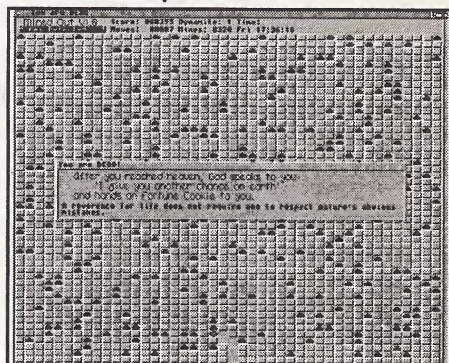 Mined Out V1.0 Score: Dynamite: 1 Time:
Moves: Mines: 0320 Fri 17:36:18
You are DEAD!
After you reached heaven, God speaks to you:
'I give you another chance on earth'
and hands an Fortune Cookie to you.
A reverence for life does not require one to respect nature's obvious
mistakes.